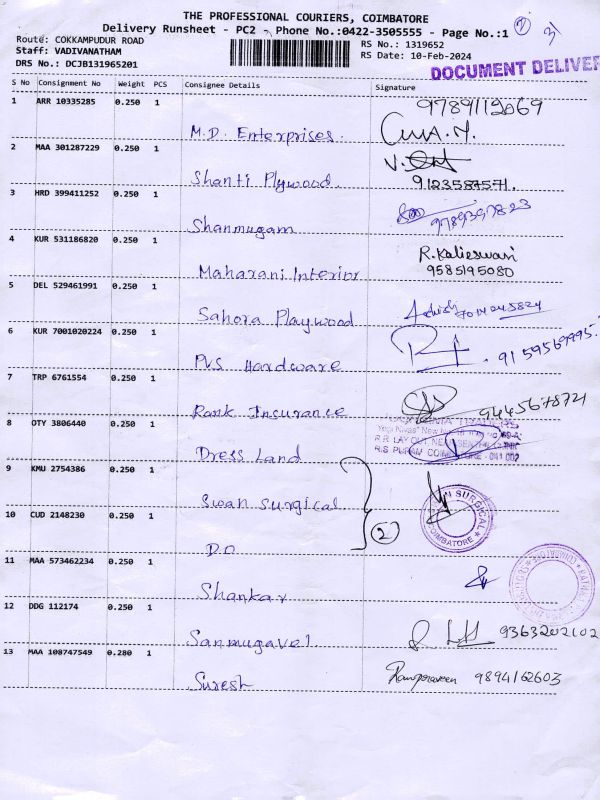 THE PROFESSIONAL COURIERS, COIMBATORE
Delivery Runsheet - PC2 - Phone No.:0422-3505555 - Page No.:1
2 3
Route: COKKAMPUDUR ROAD
Staff: VADIVANATHAM
DRS No.: DCJB131965201
RS No.: 1319652
RS Date: 10-Feb-2024
DOCUMENT DELIVER
S No Consignment No Weight PCS Consignee Details Signature
1 ARR 10335285 0.250 1 9789112069
M.D. Enterprises.
2 MAA 301287229 0.250 1
Shanti Plywood. 9123587571.
3 HRD 399411252 0.250 1
Shanmugam 9789397823
4 KUR 531186820 0.250 1 R.Kalieswari
Maharani Interior 9585195080
5 DEL 529461991 0.250 1
Sahora Playwood Ashish
6 KUR 7001020224 0.250 1
PVS Hardware 9159569995.
7 TRP 6761554 0.250 1
Rank Insurance 9445678721
8 OTY 3806440 0.250 1
Dress Land
9 KMU 2754386 0.250 1
Swan Surgical
2
SURGICAL
COIMBATORE
10 CUD 2148230 0.250 1
DO
11 MAA 573462234 0.250 1
Shankar
12 DDG 112174 0.250 1
Sanmugavel 9363202102
13 MAA 108747549 0.280 1
Suresh 9894162603